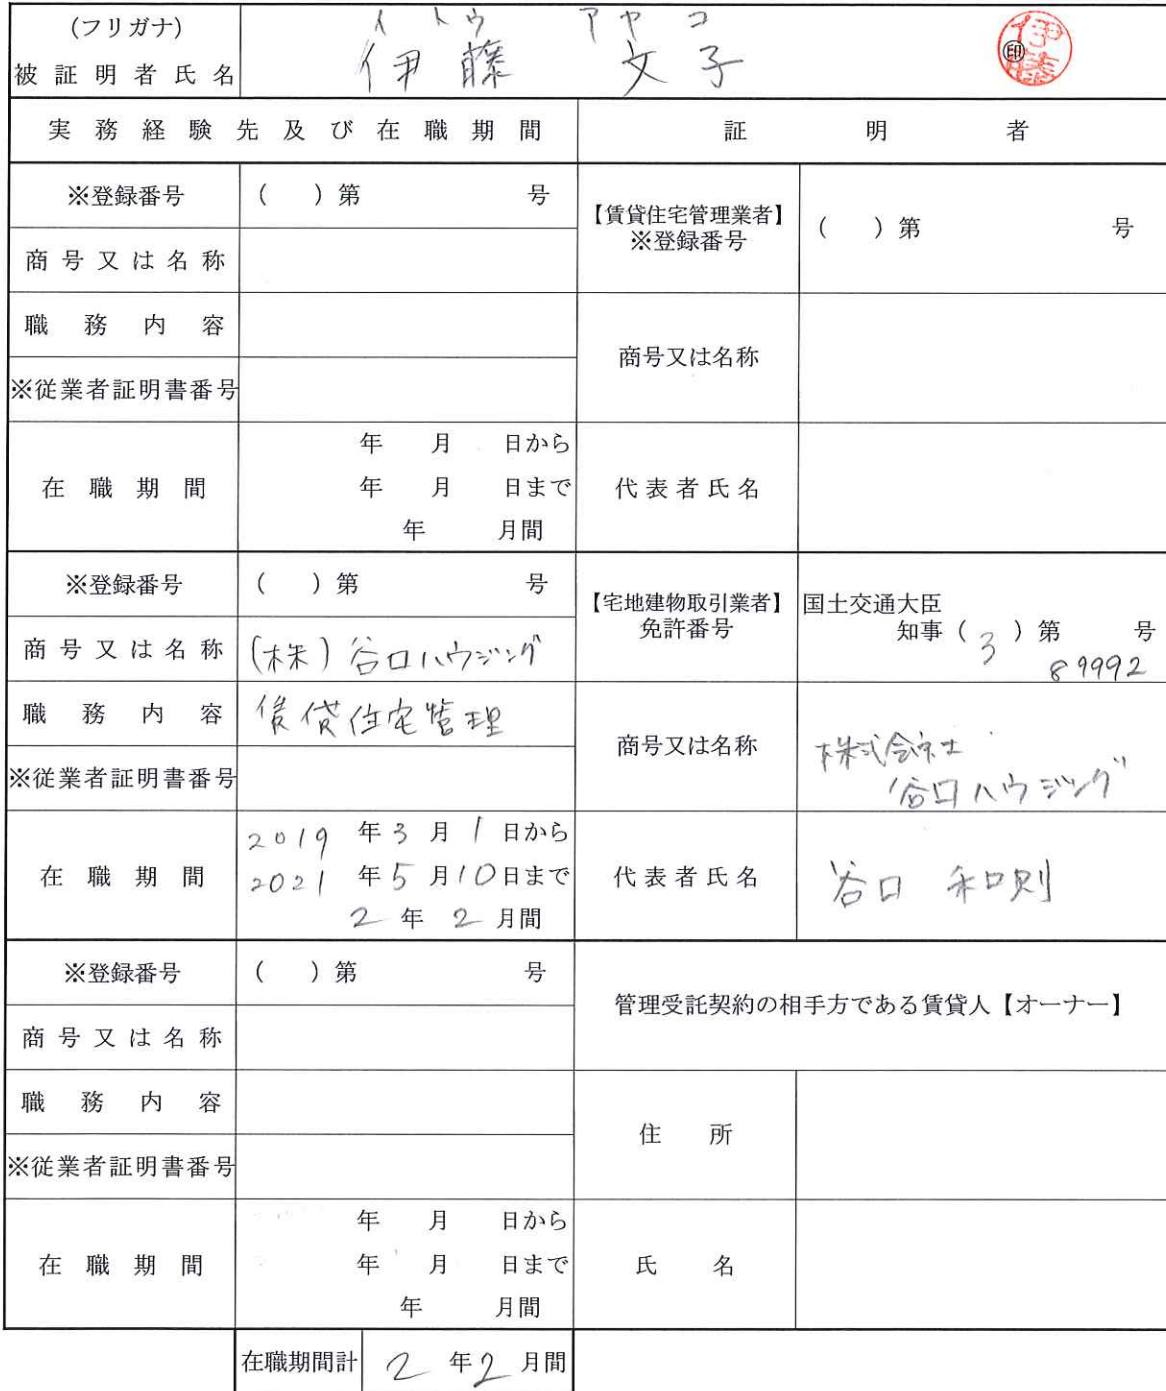 (フリガナ) イトウ アヤコ
被証明者氏名 伊藤 文子 ㊞ 伊藤
実務経験先及び在職期間 証明者
※登録番号 ( )第 号 【賃貸住宅管理業者】 ※登録番号 ( )第 号
商号又は名称
職務内容 商号又は名称
※従業者証明書番号
在職期間 年 月 日から 代表者氏名
年 月 日まで
年 月間
※登録番号 ( )第 号 【宅地建物取引業者】 免許番号 国土交通大臣
知事(3)第 89992 号
商号又は名称 (株)谷口ハウジング
職務内容 賃貸住宅管理 商号又は名称 株式会社
谷口ハウジング
※従業者証明書番号
在職期間 2019年3月1日から 代表者氏名 谷口 和則
2021年5月10日まで
2年2月間
※登録番号 ( )第 号 管理受託契約の相手方である賃貸人【オーナー】
商号又は名称
職務内容 住所
※従業者証明書番号
在職期間 年 月 日から 氏名
年 月 日まで
年 月間
在職期間計 2年2月間